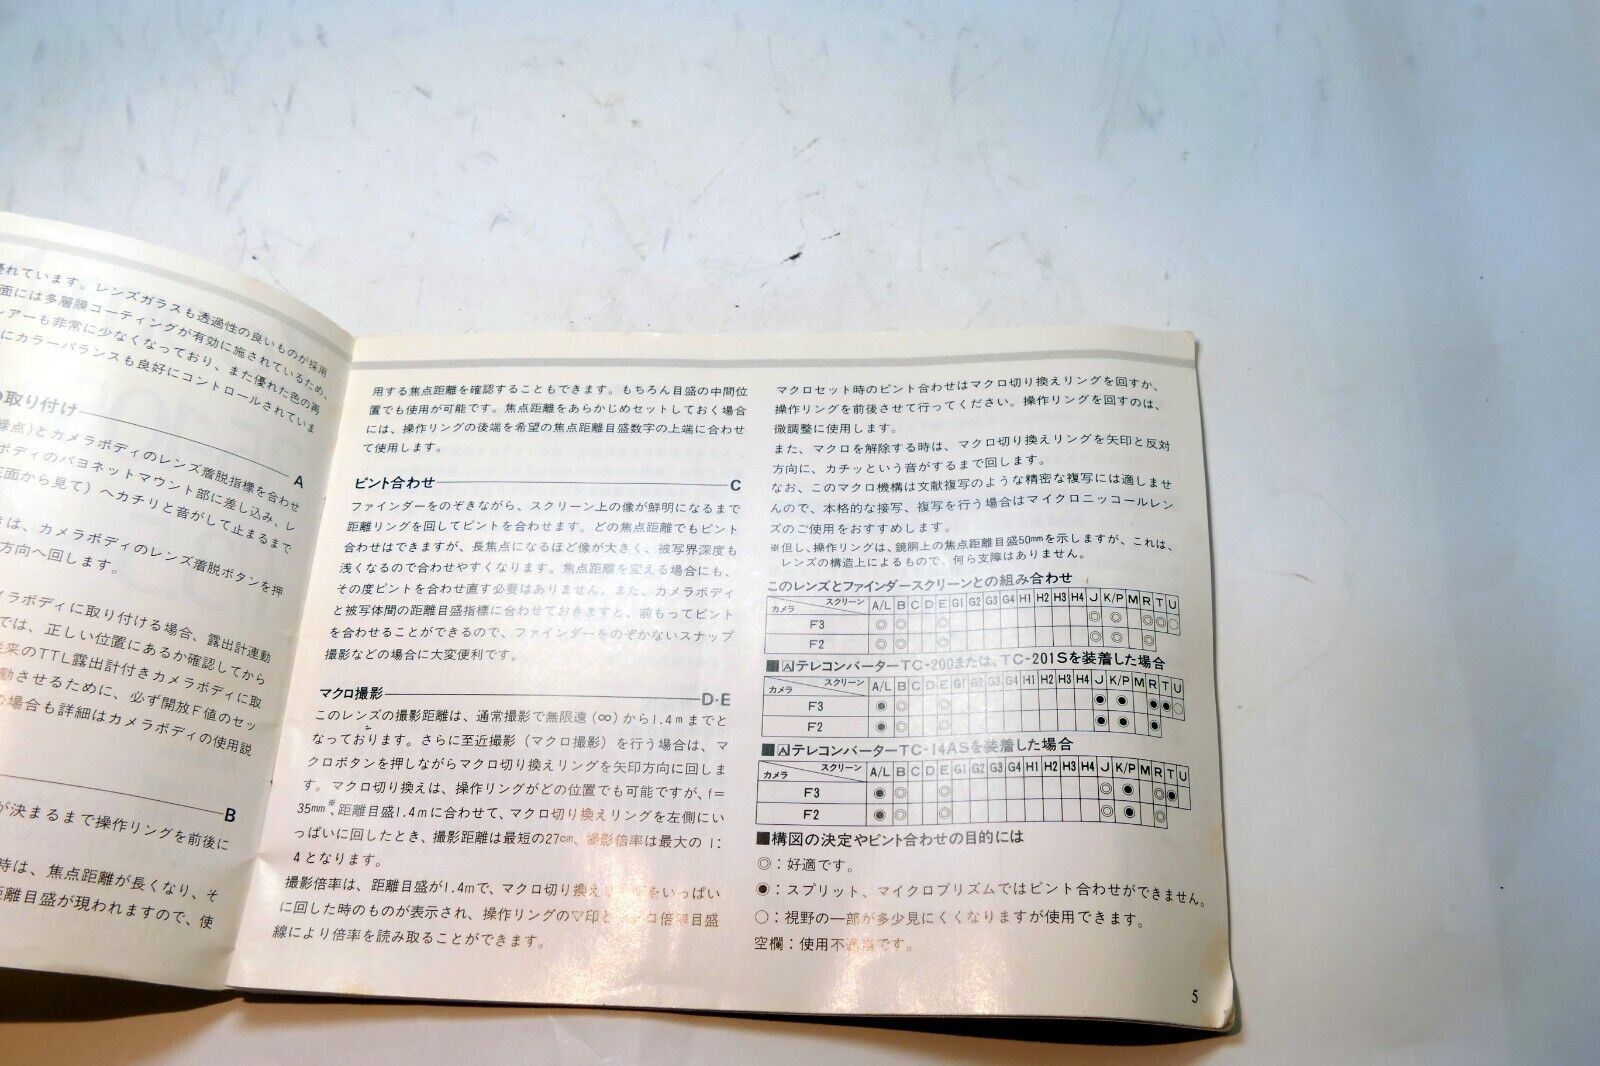 優れています。レンズガラスも透過性の良いものが採用
面には多層膜コーティングが有効に施されているため、
レアーも非常に少なくなっており、また優れた色の再
にカラーバランスも良好にコントロールされていま
の取り付け A
緑点)とカメラボディのレンズ着脱指標を合わせ
ボディのバヨネットマウント部に差し込み、レ
正面から見て)へカチリと音がして止まるまで
は、カメラボディのレンズ着脱ボタンを押
方向へ回します。
メラボディに取り付ける場合、露出計連動
では、正しい位置にあるか確認してから
従来のTTL露出計付きカメラボディに取
動させるために、必ず開放F値のセッ
の場合も詳細はカメラボディの使用説
B
が決まるまで操作リングを前後に
時は、焦点距離が長くなり、そ
距離目盛が現われますので、使
用する焦点距離を確認することもできます。もちろん目盛の中間位
置でも使用が可能です。焦点距離をあらかじめセットしておく場合
には、操作リングの後端を希望の焦点距離目盛数字の上端に合わせ
て使用します。
ピント合わせ C
ファインダーをのぞきながら、スクリーン上の像が鮮明になるまで
距離リングを回してピントを合わせます。どの焦点距離でもピント
合わせはできますが、長焦点になるほど像が大きく、被写界深度も
浅くなるので合わせやすくなります。焦点距離を変える場合にも、
その度ピントを合わせ直す必要はありません。また、カメラボディ
と被写体間の距離目盛指標に合わせておきますと、前もってピント
を合わせることができるので、ファインダーをのぞかないスナップ
撮影などの場合に大変便利です。
マクロ撮影 D・E
このレンズの撮影距離は、通常撮影で無限遠(∞)から1.4mまでと
なっております。さらに至近撮影(マクロ撮影)を行う場合は、マ
クロボタンを押しながらマクロ切り換えリングを矢印方向に回しま
す。マクロ切り換えは、操作リングがどの位置でも可能ですが、f=
35mm※、距離目盛1.4mに合わせて、マクロ切り換えリングを左側にい
っぱいに回したとき、撮影距離は最短の27cm、撮影倍率は最大の1:
4となります。
撮影倍率は、距離目盛が1.4mで、マクロ切り換えリングをいっぱい
に回した時のものが表示され、操作リングの▽印とマクロ倍率目盛
線により倍率を読み取ることができます。
マクロセット時のピント合わせはマクロ切り換えリングを回すか、
操作リングを前後させて行ってください。操作リングを回すのは、
微調整に使用します。
また、マクロを解除する時は、マクロ切り換えリングを矢印と反対
方向に、カチッという音がするまで回します。
なお、このマクロ機構は文献複写のような精密な複写には適しませ
んので、本格的な接写、複写を行う場合はマイクロニッコールレン
ズのご使用をおすすめします。
※但し、操作リングは、鏡胴上の焦点距離目盛50mmを示しますが、これは、
レンズの構造上によるもので、何ら支障はありません。
このレンズとファインダースクリーンとの組み合わせ
カメラ スクリーン A/L B C D E G1 G2 G3 G4 H1 H2 H3 H4 J K/P M R T U
F3 ◎ ◎ ◎ ◎ ◎ ◎ ◎ ○
F2 ◎ ◎ ◎ ◎ ◎ ◎
■AテレコンバーターTC-200または、TC-201Sを装着した場合
カメラ スクリーン A/L B C D E G1 G2 G3 G4 H1 H2 H3 H4 J K/P M R T U
F3 ◉ ◎ ◎ ◉ ◉ ◉ ◉ ○
F2 ◉ ◎ ◎ ◉ ◉ ◉
■AテレコンバーターTC-14ASを装着した場合
カメラ スクリーン A/L B C D E G1 G2 G3 G4 H1 H2 H3 H4 J K/P M R T U
F3 ◉ ◎ ◎ ◎ ◉ ◎ ◉
F2 ◉ ◎ ◎ ◎ ◉ ◎
■構図の決定やピント合わせの目的には
◎:好適です。
◉:スプリット、マイクロプリズムではピント合わせができません。
○:視野の一部が多少見にくくなりますが使用できます。
空欄:使用不適当です。
5